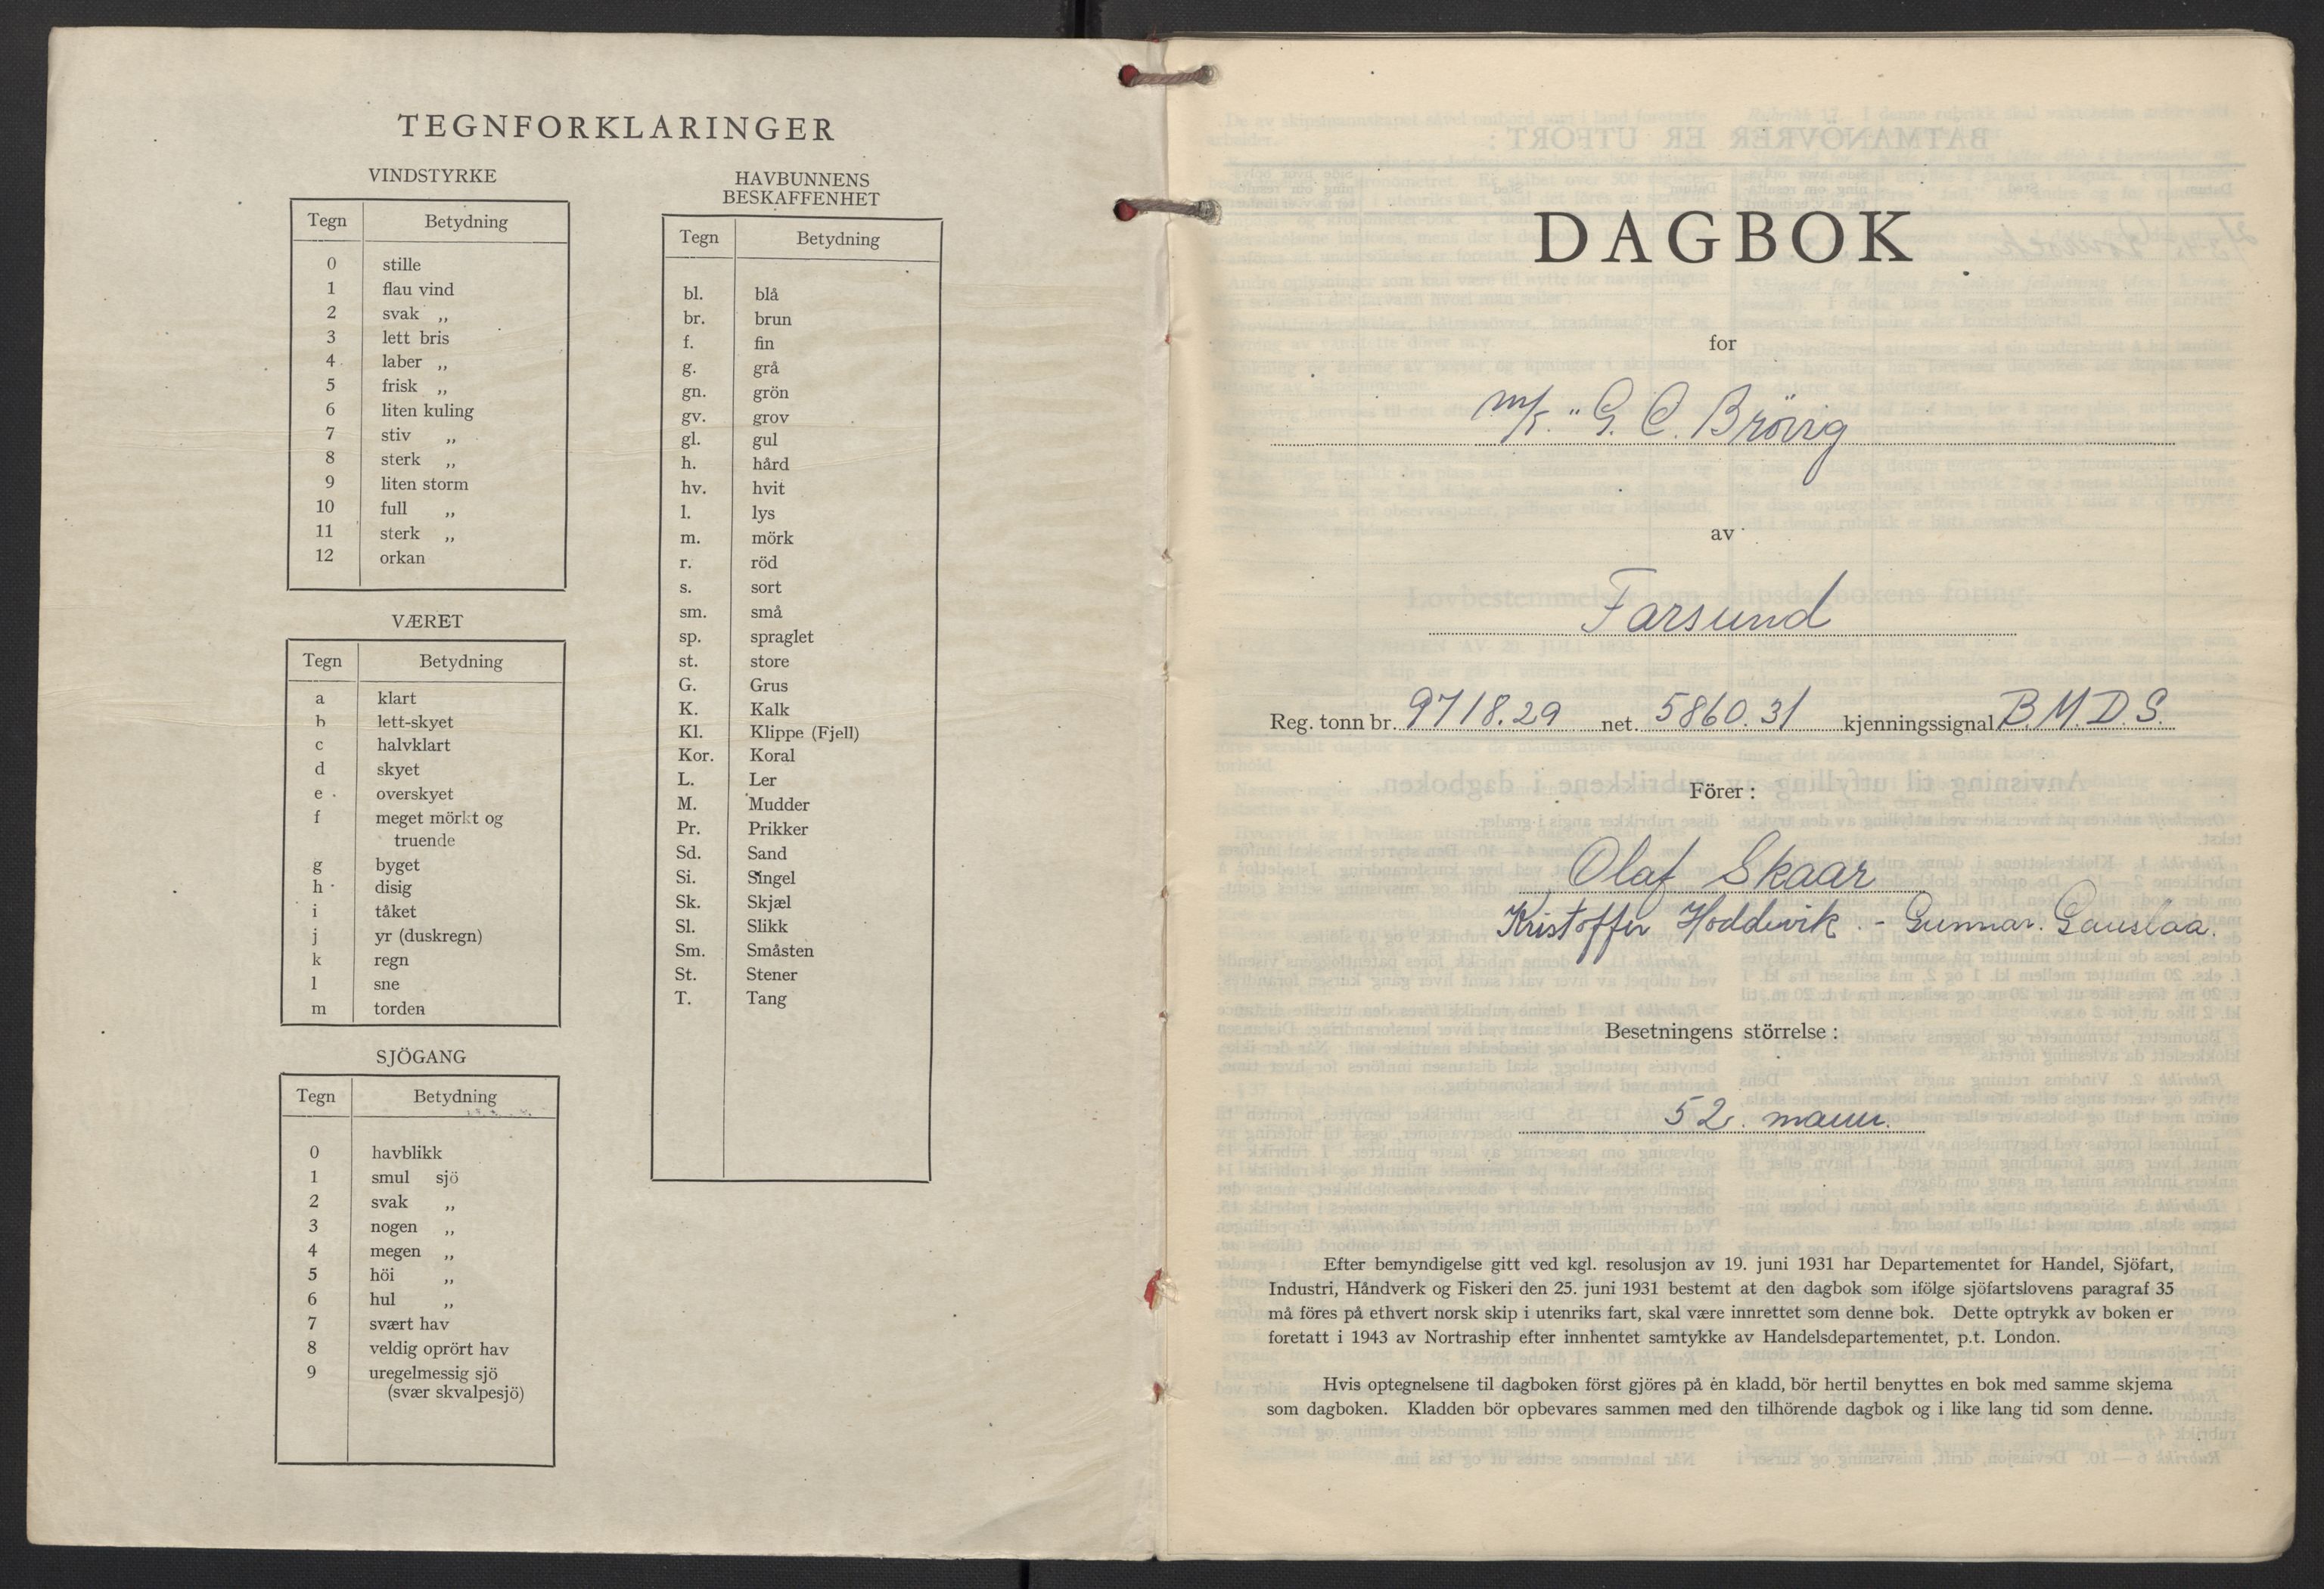 TEGNFORKLARINGER
VINDSTYRKE
Tegn Betydning
0 stille
1 flau vind
2 svak „
3 lett bris
4 laber „
5 frisk „
6 liten kuling
7 stiv „
8 sterk „
9 liten storm
10 full „
11 sterk „
12 orkan
VÆRET
Tegn Betydning
a klart
b lett-skyet
c halvklart
d skyet
e overskyet
f meget mörkt og
truende
g byget
h disig
i tåket
j yr (duskregn)
k regn
l sne
m torden
SJÖGANG
Tegn Betydning
0 havblikk
1 smul sjö
2 svak „
3 nogen „
4 megen „
5 höi „
6 hul „
7 svært hav
8 veldig oprört hav
9 uregelmessig sjö
(svær skvalpesjö)
HAVBUNNENS
BESKAFFENHET
Tegn Betydning
bl. blå
br. brun
f. fin
g. grå
gn. grön
gv. grov
gl. gul
h. hård
hv. hvit
l. lys
m. mörk
r. röd
s. sort
sm. små
sp. spraglet
st. store
G. Grus
K. Kalk
Kl. Klippe (Fjell)
Kor. Koral
L. Ler
M. Mudder
Pr. Prikker
Sd. Sand
Si. Singel
Sk. Skjæl
Sl. Slikk
Sm. Småsten
St. Stener
T. Tang
DAGBOK
for
m/t. "G. C. Brövig
av
Farsund
Reg. tonn br. 9718.29 net. 5860.31 kjenningssignal B.M.D.S.
Förer:
Olaf Skaar
Kristoffer Hoddevik. - Gunnar. Gauslaa.
Besetningens störrelse:
52. mann.
Efter bemyndigelse gitt ved kgl. resolusjon av 19. juni 1931 har Departementet for Handel, Sjöfart,
Industri, Håndverk og Fiskeri den 25. juni 1931 bestemt at den dagbok som ifölge sjöfartslovens paragraf 35
må föres på ethvert norsk skip i utenriks fart, skal være innrettet som denne bok. Dette optrykk av boken er
foretatt i 1943 av Nortraship efter innhentet samtykke av Handelsdepartementet, p.t. London.
Hvis optegnelsene til dagboken först gjöres på en kladd, bör hertil benyttes en bok med samme skjema
som dagboken. Kladden bör opbevares sammen med den tilhörende dagbok og i like lang tid som denne.